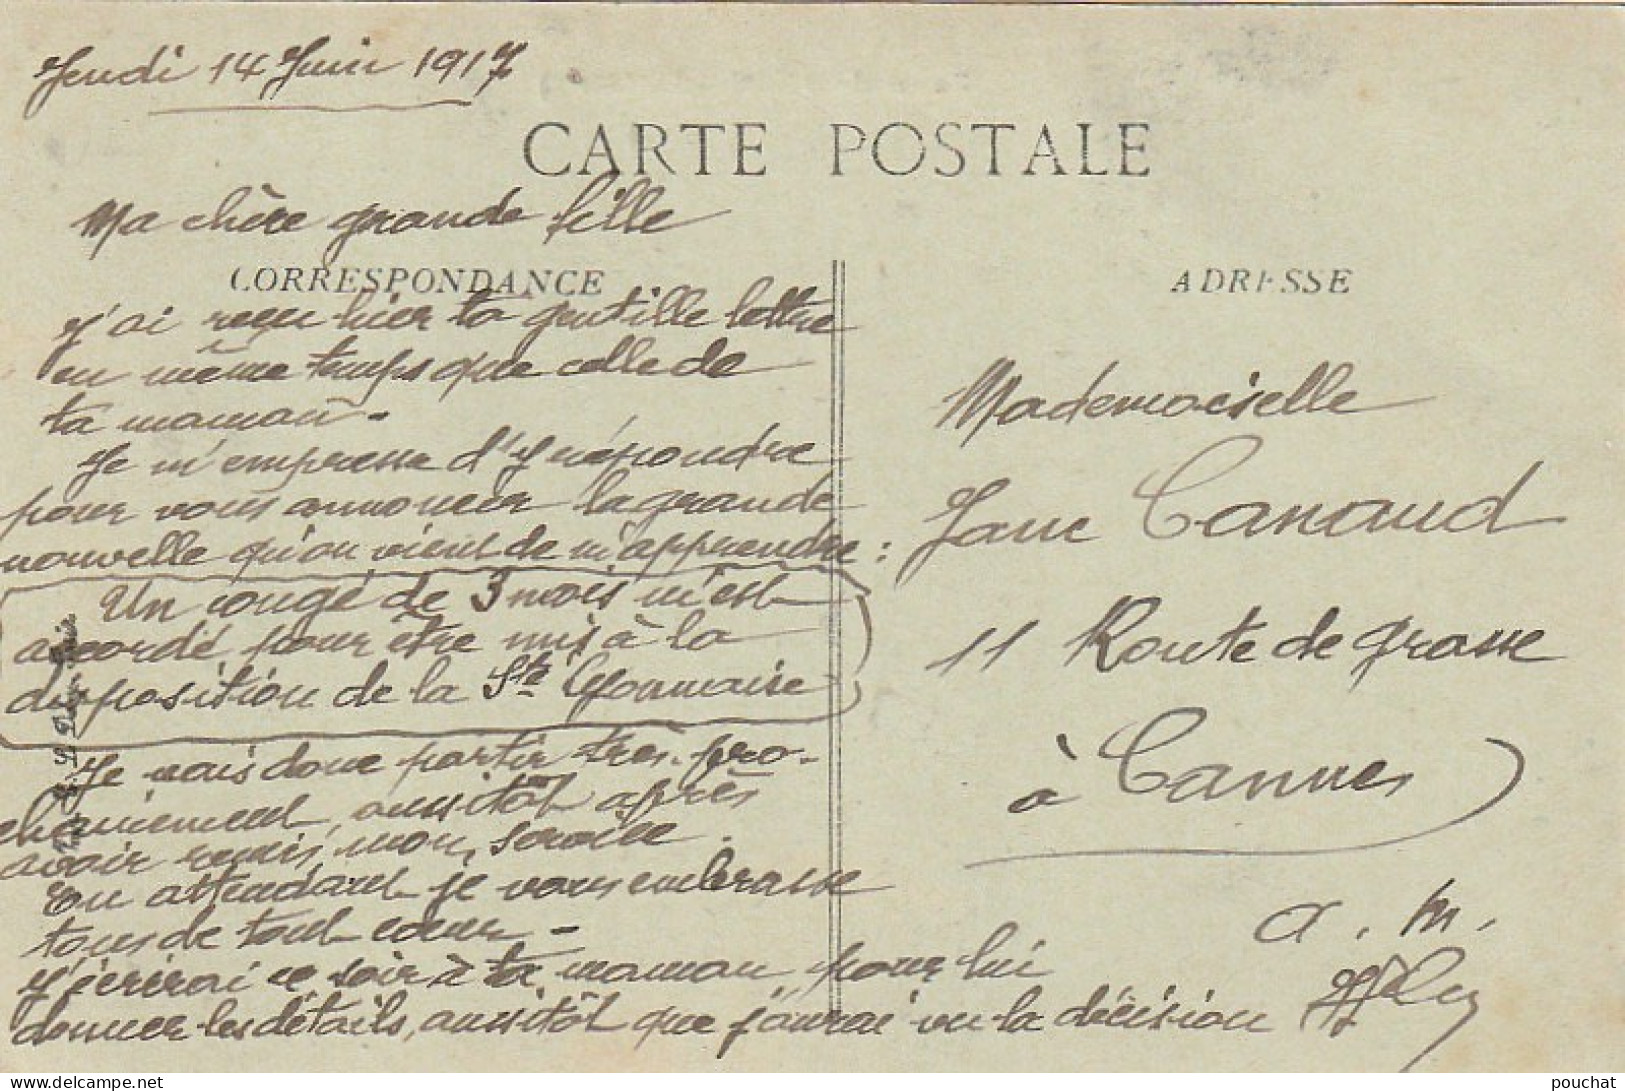 Jeudi 14 Juin 1917
CARTE POSTALE
Ma chère grande fille
CORRESPONDANCE
J'ai reçu hier ta gentille lettre
en même temps que celle de
ta maman -
Je m'empresse d'y répondre
pour vous annoncer la grande
nouvelle qu'on vient de m'apprendre :
Un congé de 3 mois m'est
accordé pour être mis à la
disposition de la Sté Lyonnaise
Je vais donc partir très pro-
chainement, aussitôt après
avoir remis mon service.
En attendant je vous embrasse
tous de tout coeur -
J'écrirai ce soir à ta maman, pour lui
donner les détails, aussitôt que j'aurai vu la décision
ADRESSE
Mademoiselle
Jane Canaud
11 Route de Grasse
à Cannes
a. m.
pouchat
delcampe.net